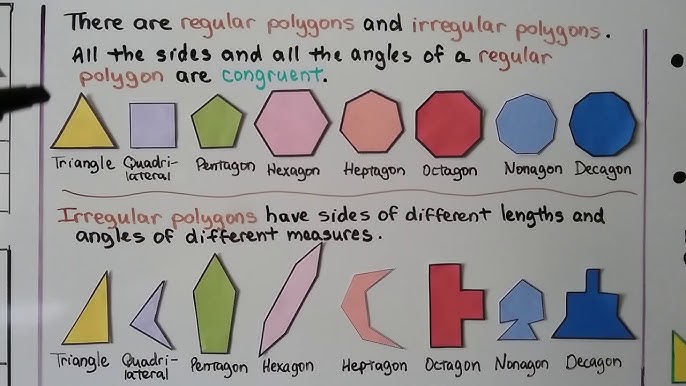 There are regular polygons and irregular polygons.
All the sides and all the angles of a regular
polygon are congruent.
Triangle Quadri- Pentagon Hexagon Heptagon Octagon Nonagon Decagon
lateral
Irregular polygons have sides of different lengths and
angles of different measures.
Triangle Quadri- Pentagon Hexagon Heptagon Octagon Nonagon Decagon
lateral